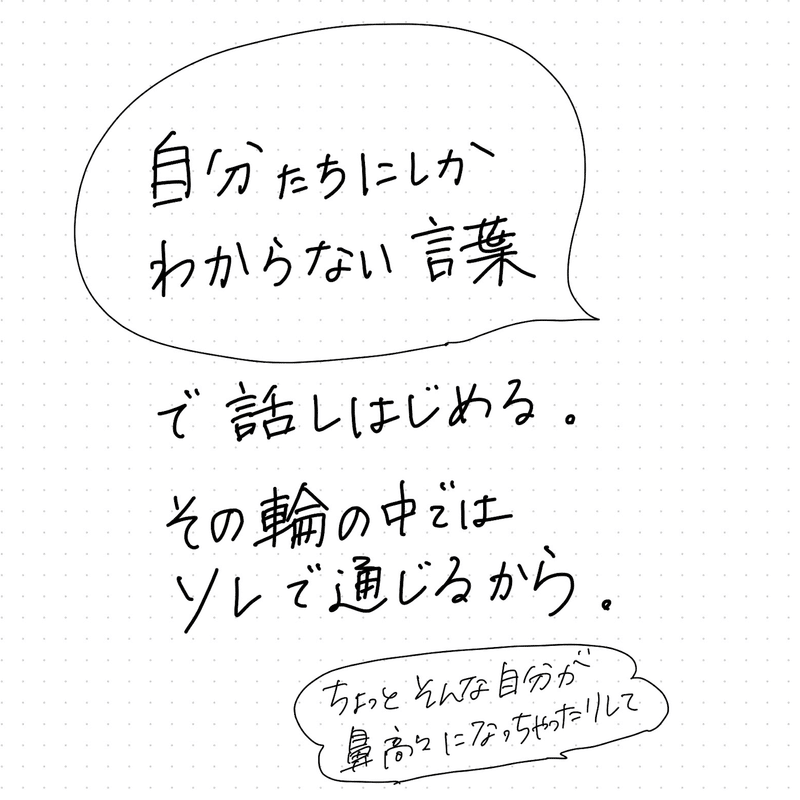 自分たちにしか
わからない言葉
で話しはじめる。
その輪の中では
ソレで通じるから。
ちょっとそんな自分が
鼻高々になっちゃったりして